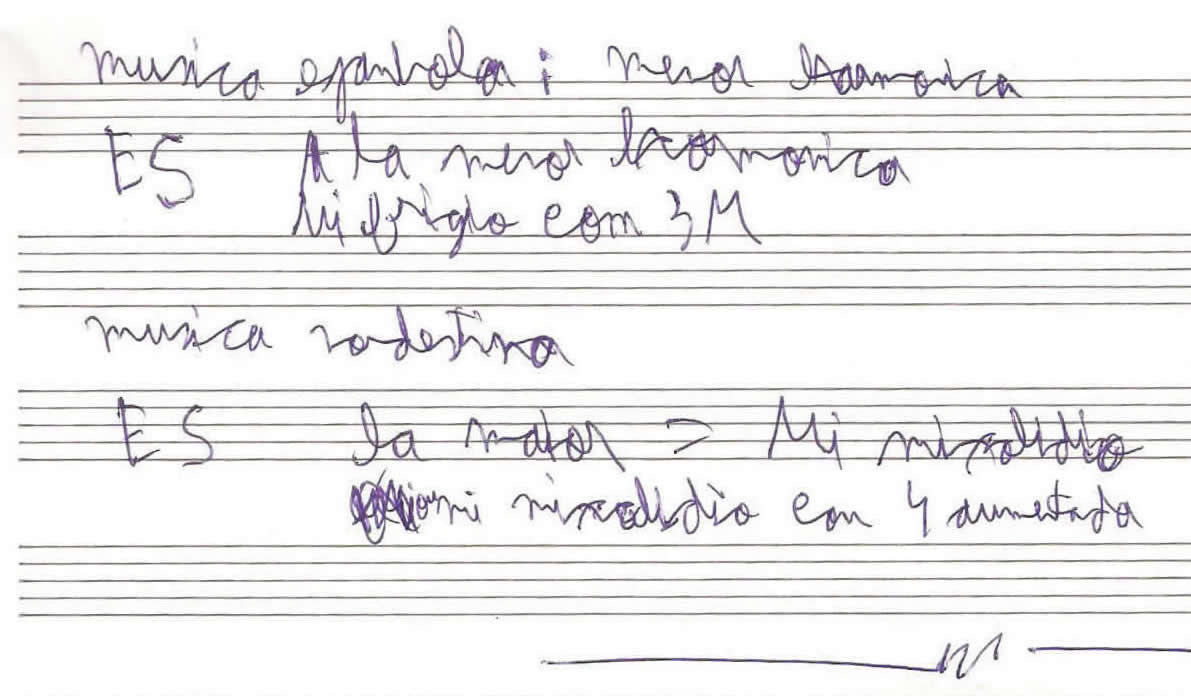 musica espanhola: menor harmonica
ES A la menor harmonica
Mi frigio com 3M
musica nordestina
ES la maior = Mi mixolidio
mi mixolidio com 4 aumentada